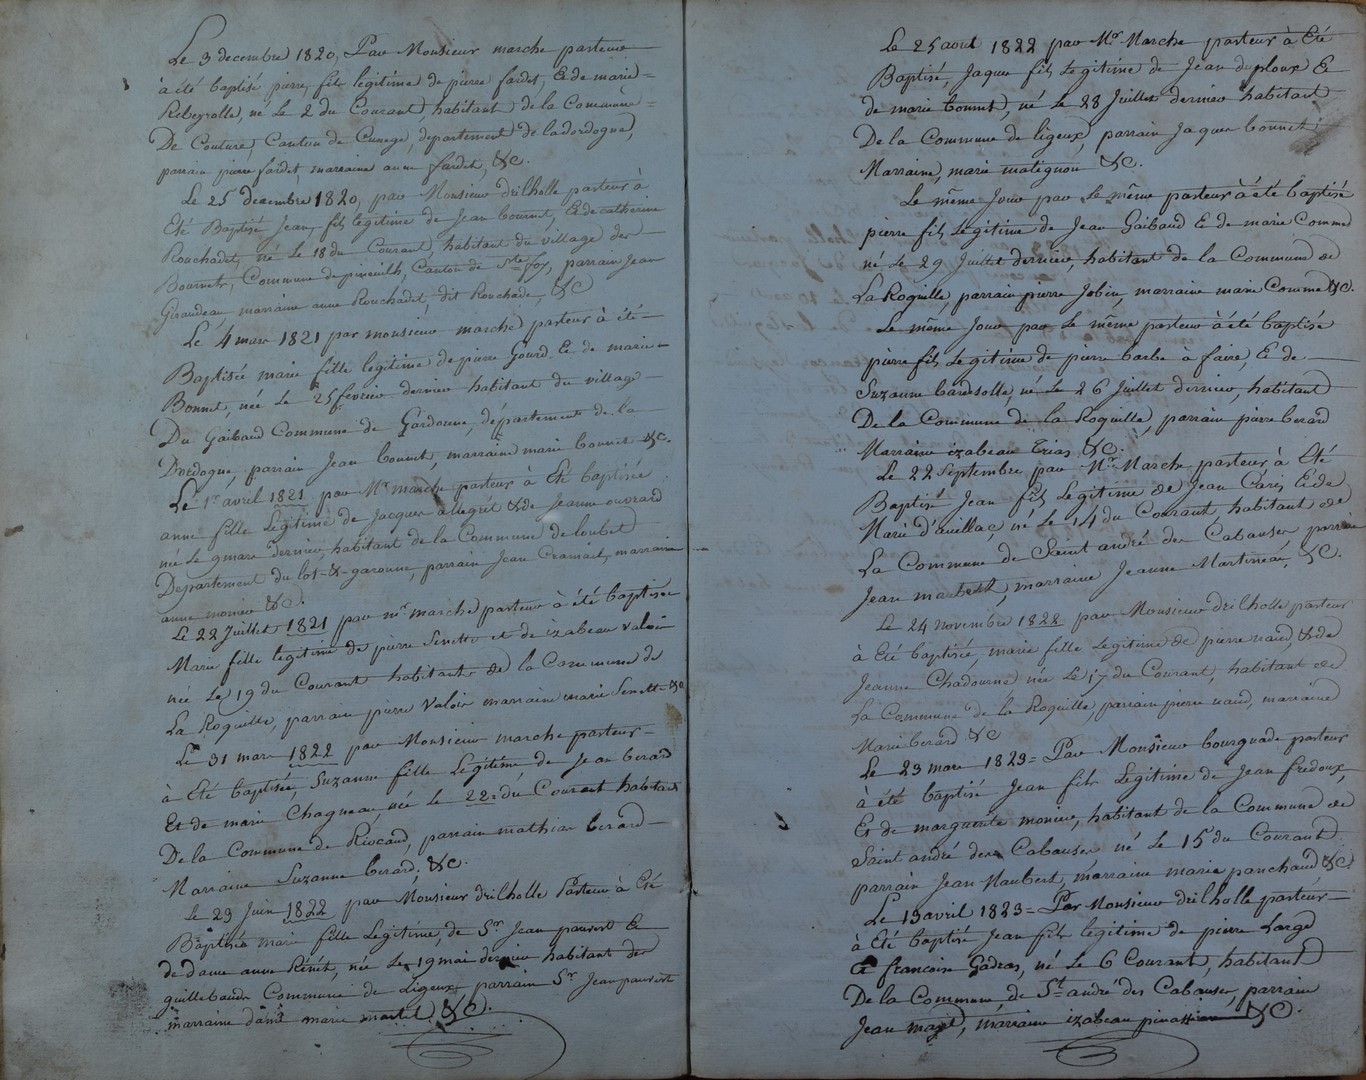 Le 3 decembre 1820, Par Monsieur marche pasteur
à été baptisé pierre, fils legitime de pierre fardet, & de marie=
Rebeyrolle, né le 2 du Courant, habitant de la Commune=
De Couture, Canton de Cunege, département de la dordogne,
parrain pierre fardet, marraine anne fardet, &c.
Le 25 decembre 1820, par Monsieur drilholle pasteur à
Eté Baptisé Jean, fils legitime de Jean bournet, & de catherine
Rouchadet, né Le 18 du Courant, habitant du village des
Bournets, Commune de pineuilh, Canton de Ste foy, parrain Jean
Giraudeau, marraine anne Rouchadet, dit Rouchade, &c
Le 4 mars 1821 par monsieur marche pasteur à été-
Baptisée marie fille legitime de pierre Gourd & de marie-
Bonnet, née Le 25 fevrier dernier habitant du village
Du Gaibaud Commune de Gardonne, département de la
Dordogne, parrain Jean bonnet, marraine marie bonnet &c.
Le 1er avril 1821 par Mr marche pasteur à Eté baptisée
anne fille Legitime de Jacques allegrét & de Jeanne ouvrard
née Le 9 mars dernier, habitant de la Commune de loubet
Département du lot-&-garonne, parrain Jean Cramait, marraine
anne &c.
Le 22 Juillet 1821 par mr marche pasteur à été baptisée
Marie fille legitime de pierre Senette et de izabeau Valoir
née Le 19 du Courant habitants de la Commune de
La Roquille, parrain pierre Valoir marraine marie Senette &c
Le 31 mars 1822 par Monsieur marche pasteur-
à Eté baptisée, Suzanne fille Legitime de Jean berard
Et de marie Chagneau, née le 22: du Courant habitant
De la Commune de Riocaud, parrain mathieu berard-
Marraine Suzanne berard, &c.
Le 23 Juin 1822 par Monsieur drilholle Pasteur à Eté
Baptisée marie fille Legitime, de Sr Jean pauvert &
de dame anne Rérét, née Le 19 mai dernier habitant des
guillebauds Commune de Ligeux, parrain Sr Jean pauvert
marraine dame marie martel &c.
Le 25 aout 1822 par Mr Marche pasteur à Eté
Baptisé, Jaque fils Legitime de Jean duploux &
de marie bonnet, né Le 28 Juillet dernier habitant
De la Commune de ligeux, parrain Jaques bonnet
Marraine, marie matignon &c.
Le même Jour par Le même pasteur à été baptisé
pierre fils Legitime de Jean Gaibaud & de marie Comme
né Le 29 Juillet dernier, habitant de la Commune de
La Roquille, parrain pierre Jobin, marraine marie Comme &c.
Le même Jour par Le même pasteur à été baptisé
pierre fils Legitime de pierre barbe a faire, & de
Suzanne bardesolle, né Le 26 Juillet dernier, habitant
De la Commune de la Roquille, parrain pierre berard
Marraine izabeau Trias &c.
Le 22 Septembre par Mr Marche pasteur à Eté
Baptisé Jean fils Legitime de Jean Carés & de
Marie d'aeillac, né Le 14 du Courant habitant de
La Commune de Saint andré des Cabauses parrain
Jean marraine Jeanne Martineau, &c.
Le 24 Novembre 1822 par Monsieur drilholle pasteur
à Eté baptisée, marie fille Legitime de pierre naud, & de
Jeanne Chadourne née Le 17 du Courant, habitant de
La Commune de la Roquille, parrain pierre naud, marraine
Marie berard &c
Le 23 mars 1823= Par Monsieur bourguade pasteur
à été baptisé Jean fils Legitime de Jean fredoux
Et de marguerite monceu, habitant de la Commune de
Saint andré des Cabauses né Le 15 du Courant
parrain Jean Naubert, marraine marie panchaud &c
Le 13 avril 1823= Par Monsieur drilholle pasteur-
à Eté baptisé Jean fils legitime de pierre Large
& francoise Gadras, né Le 6 Courant, habitant
De la Commune, de St andré des Cabauses, parrain
Jean marraine izabeau &c.